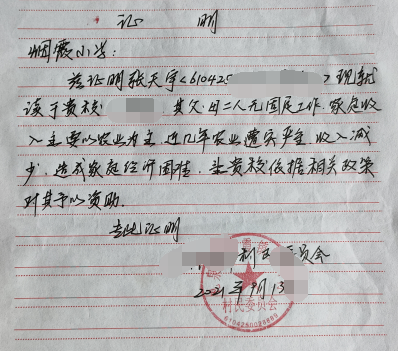 证 明
烟霞小学:
兹证明张天宇(610425 )现就
读于贵校 其父、母二人无固定工作,家庭收
入主要以农业为主,近几年农业遭灾严重,收入减
少,造成家庭经济困难,望贵校依据相关政策
对其予以资助.
特此证明
村 委员会
2021年9月13
村民委员会
6104250026869